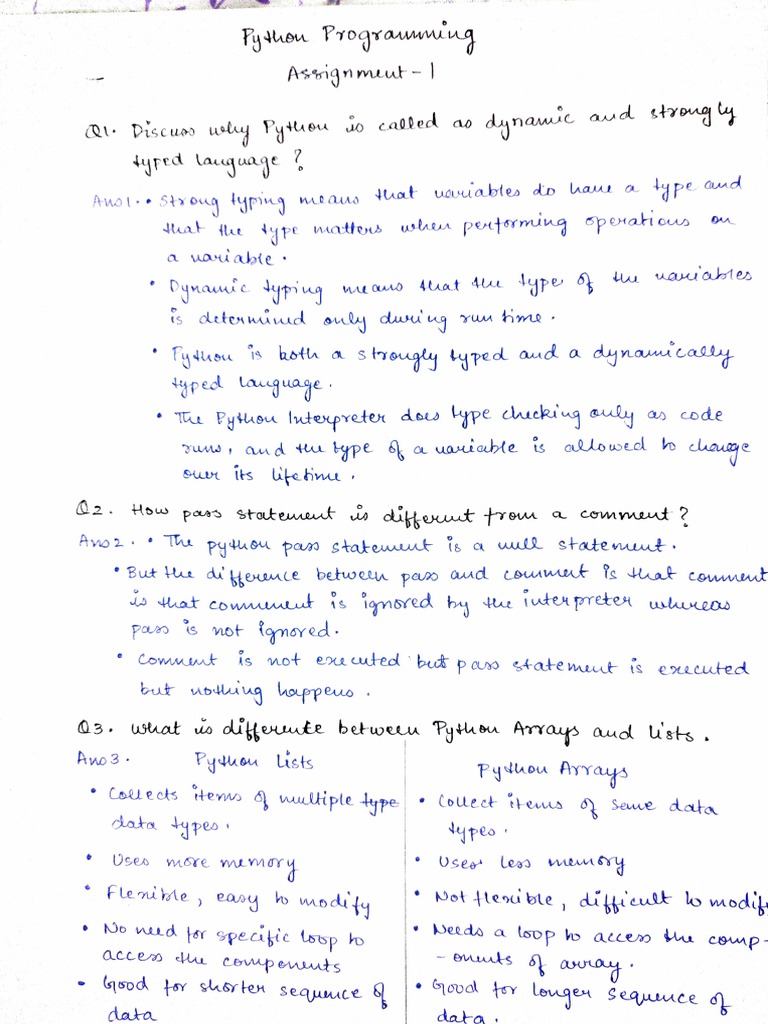 Python Programming
Assignment - 1
Q1. Discuss why Python is called as dynamic and strongly
typed language ?
Ans1. • Strong typing means that variables do have a type and
that the type matters when performing operations on
a variable.
• Dynamic typing means that the type of the variables
is determined only during run time.
• Python is both a strongly typed and a dynamically
typed language.
• The Python Interpreter does type checking only as code
runs, and the type of a variable is allowed to change
over its lifetime.
Q2. How pass statement is different from a comment ?
Ans2. • The python pass statement is a null statement.
• But the difference between pass and comment is that comment
is that comment is ignored by the interpreter whereas
pass is not ignored.
• Comment is not executed but pass statement is executed
but nothing happens.
Q3. What is difference between Python Arrays and lists.
Ans3. Python Lists
• Collects items of multiple type
data types.
• Uses more memory
• Flexible, easy to modify
• No need for specific loop to
access the components
• Good for shorter sequence of
data
Python Arrays
• Collect items of same data
types.
• Uses less memory
• Not flexible, difficult to modify
• Needs a loop to access the comp-
-onents of array.
• Good for longer sequence of
data.